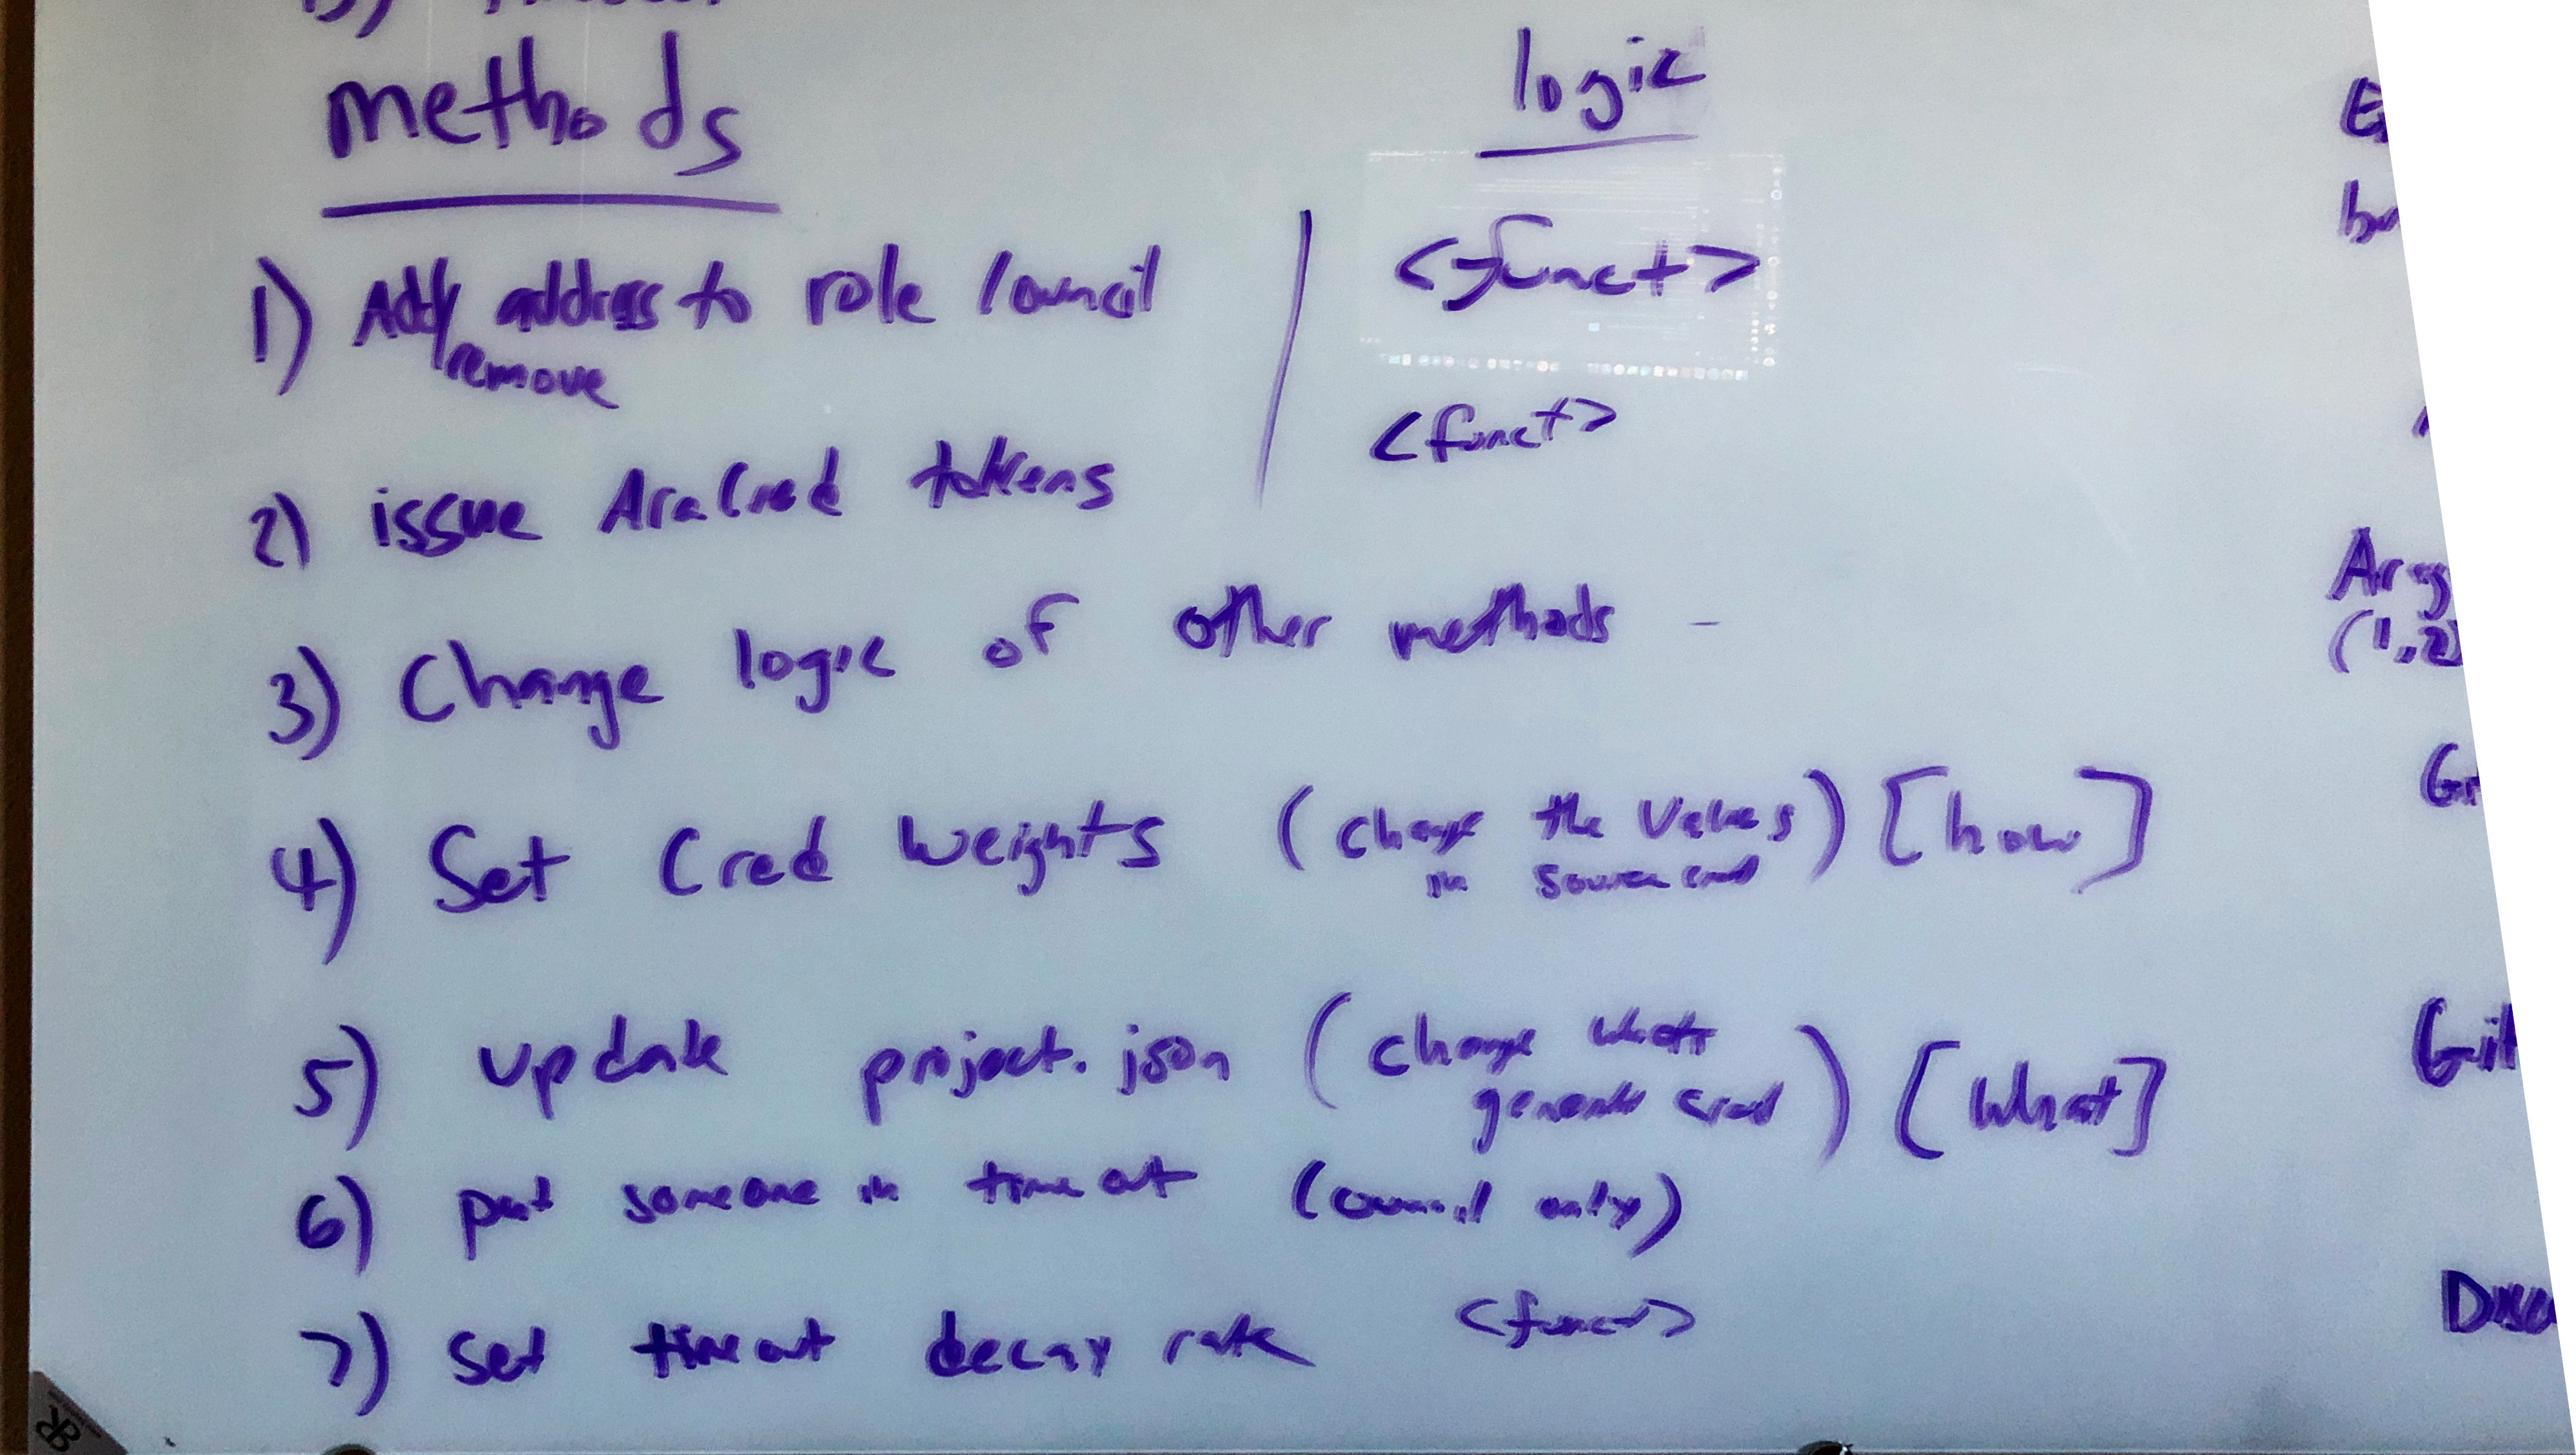 methods
logic
1) Add/remove address to role council
<funct>
2) issue AraCred tokens
<funct>
3) Change logic of other methods -
Arg
(1,2)
4) Set Cred Weights (change the values in sourcecred) [how]
5) update project.json (change what generates cred) [What]
6) put someone in timeout (council only)
7) set timeout decay rate
<funct>